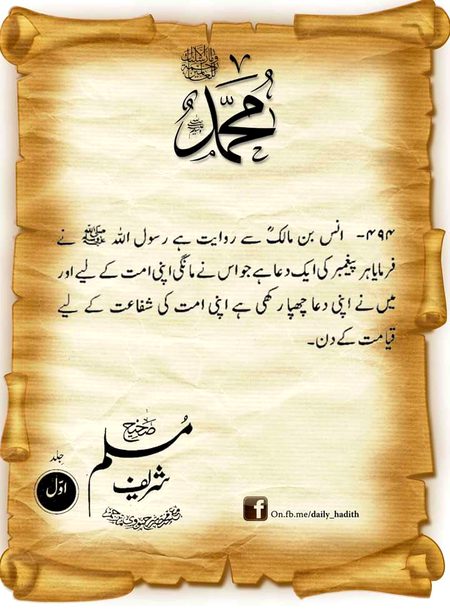 محمد
۴۹۴- انس بن مالکؓ سے روایت ہے رسول اللہ ﷺ نے
فرمایا ہر پیغمبر کی ایک دعا ہے جو اس نے مانگی اپنی امت کے لیے اور
میں نے اپنی دعا چھپا رکھی ہے اپنی امت کی شفاعت کے لیے
قیامت کے دن۔
صحیح
مسلم
شریف
جلد
اوّل
On.fb.me/daily_hadith